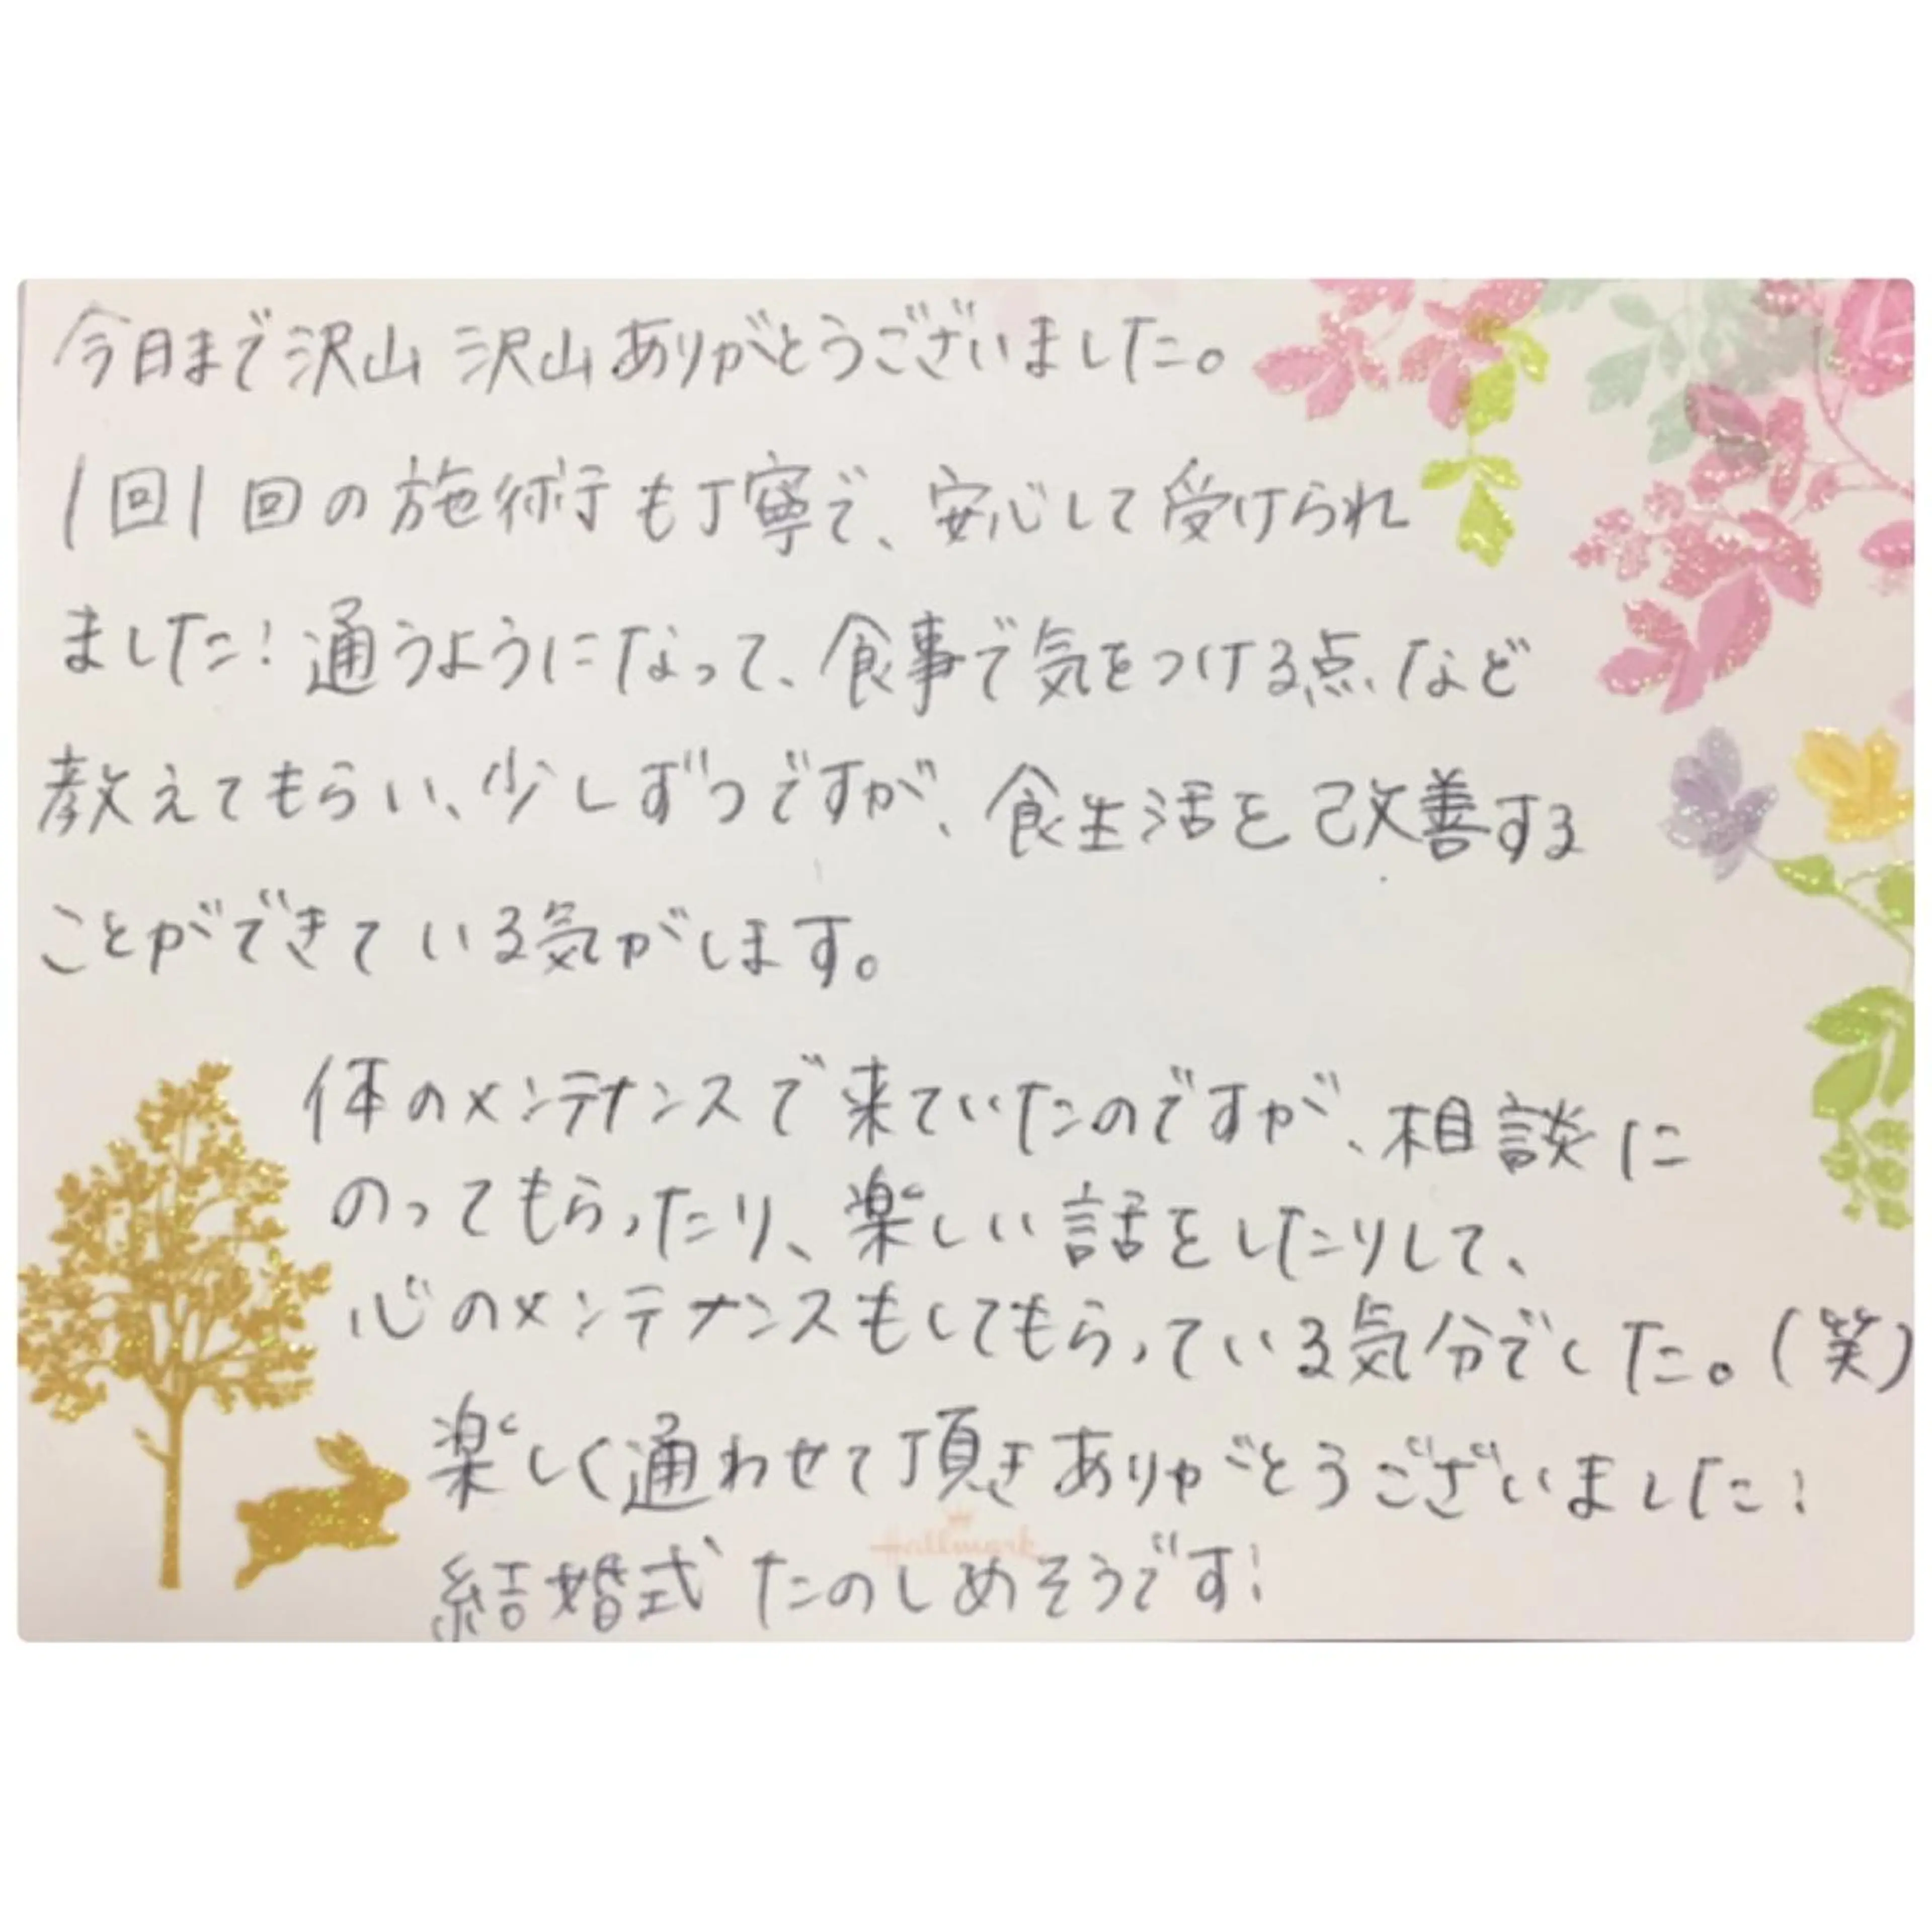 今日まで沢山 沢山ありがとうございました。
1回1回の施術も丁寧で、安心して受けられ
ました！通うようになって、食事で気をつける点など
教えてもらい、少しずつですが、食生活を改善する
ことができている気がします。
体のメンテナンスで来ていたのですが、相談に
のってもらったり、楽しい話をしたりして、
心のメンテナンスもしてもらっている気分でした。(笑)
楽しく通わせて頂きありがとうございました！
Hallmark
結婚式たのしめそうです！